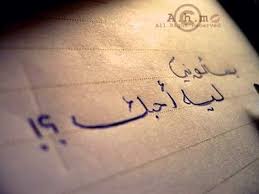 A h m
All Right reserved
بسألوني
ليه أحبك ؟!